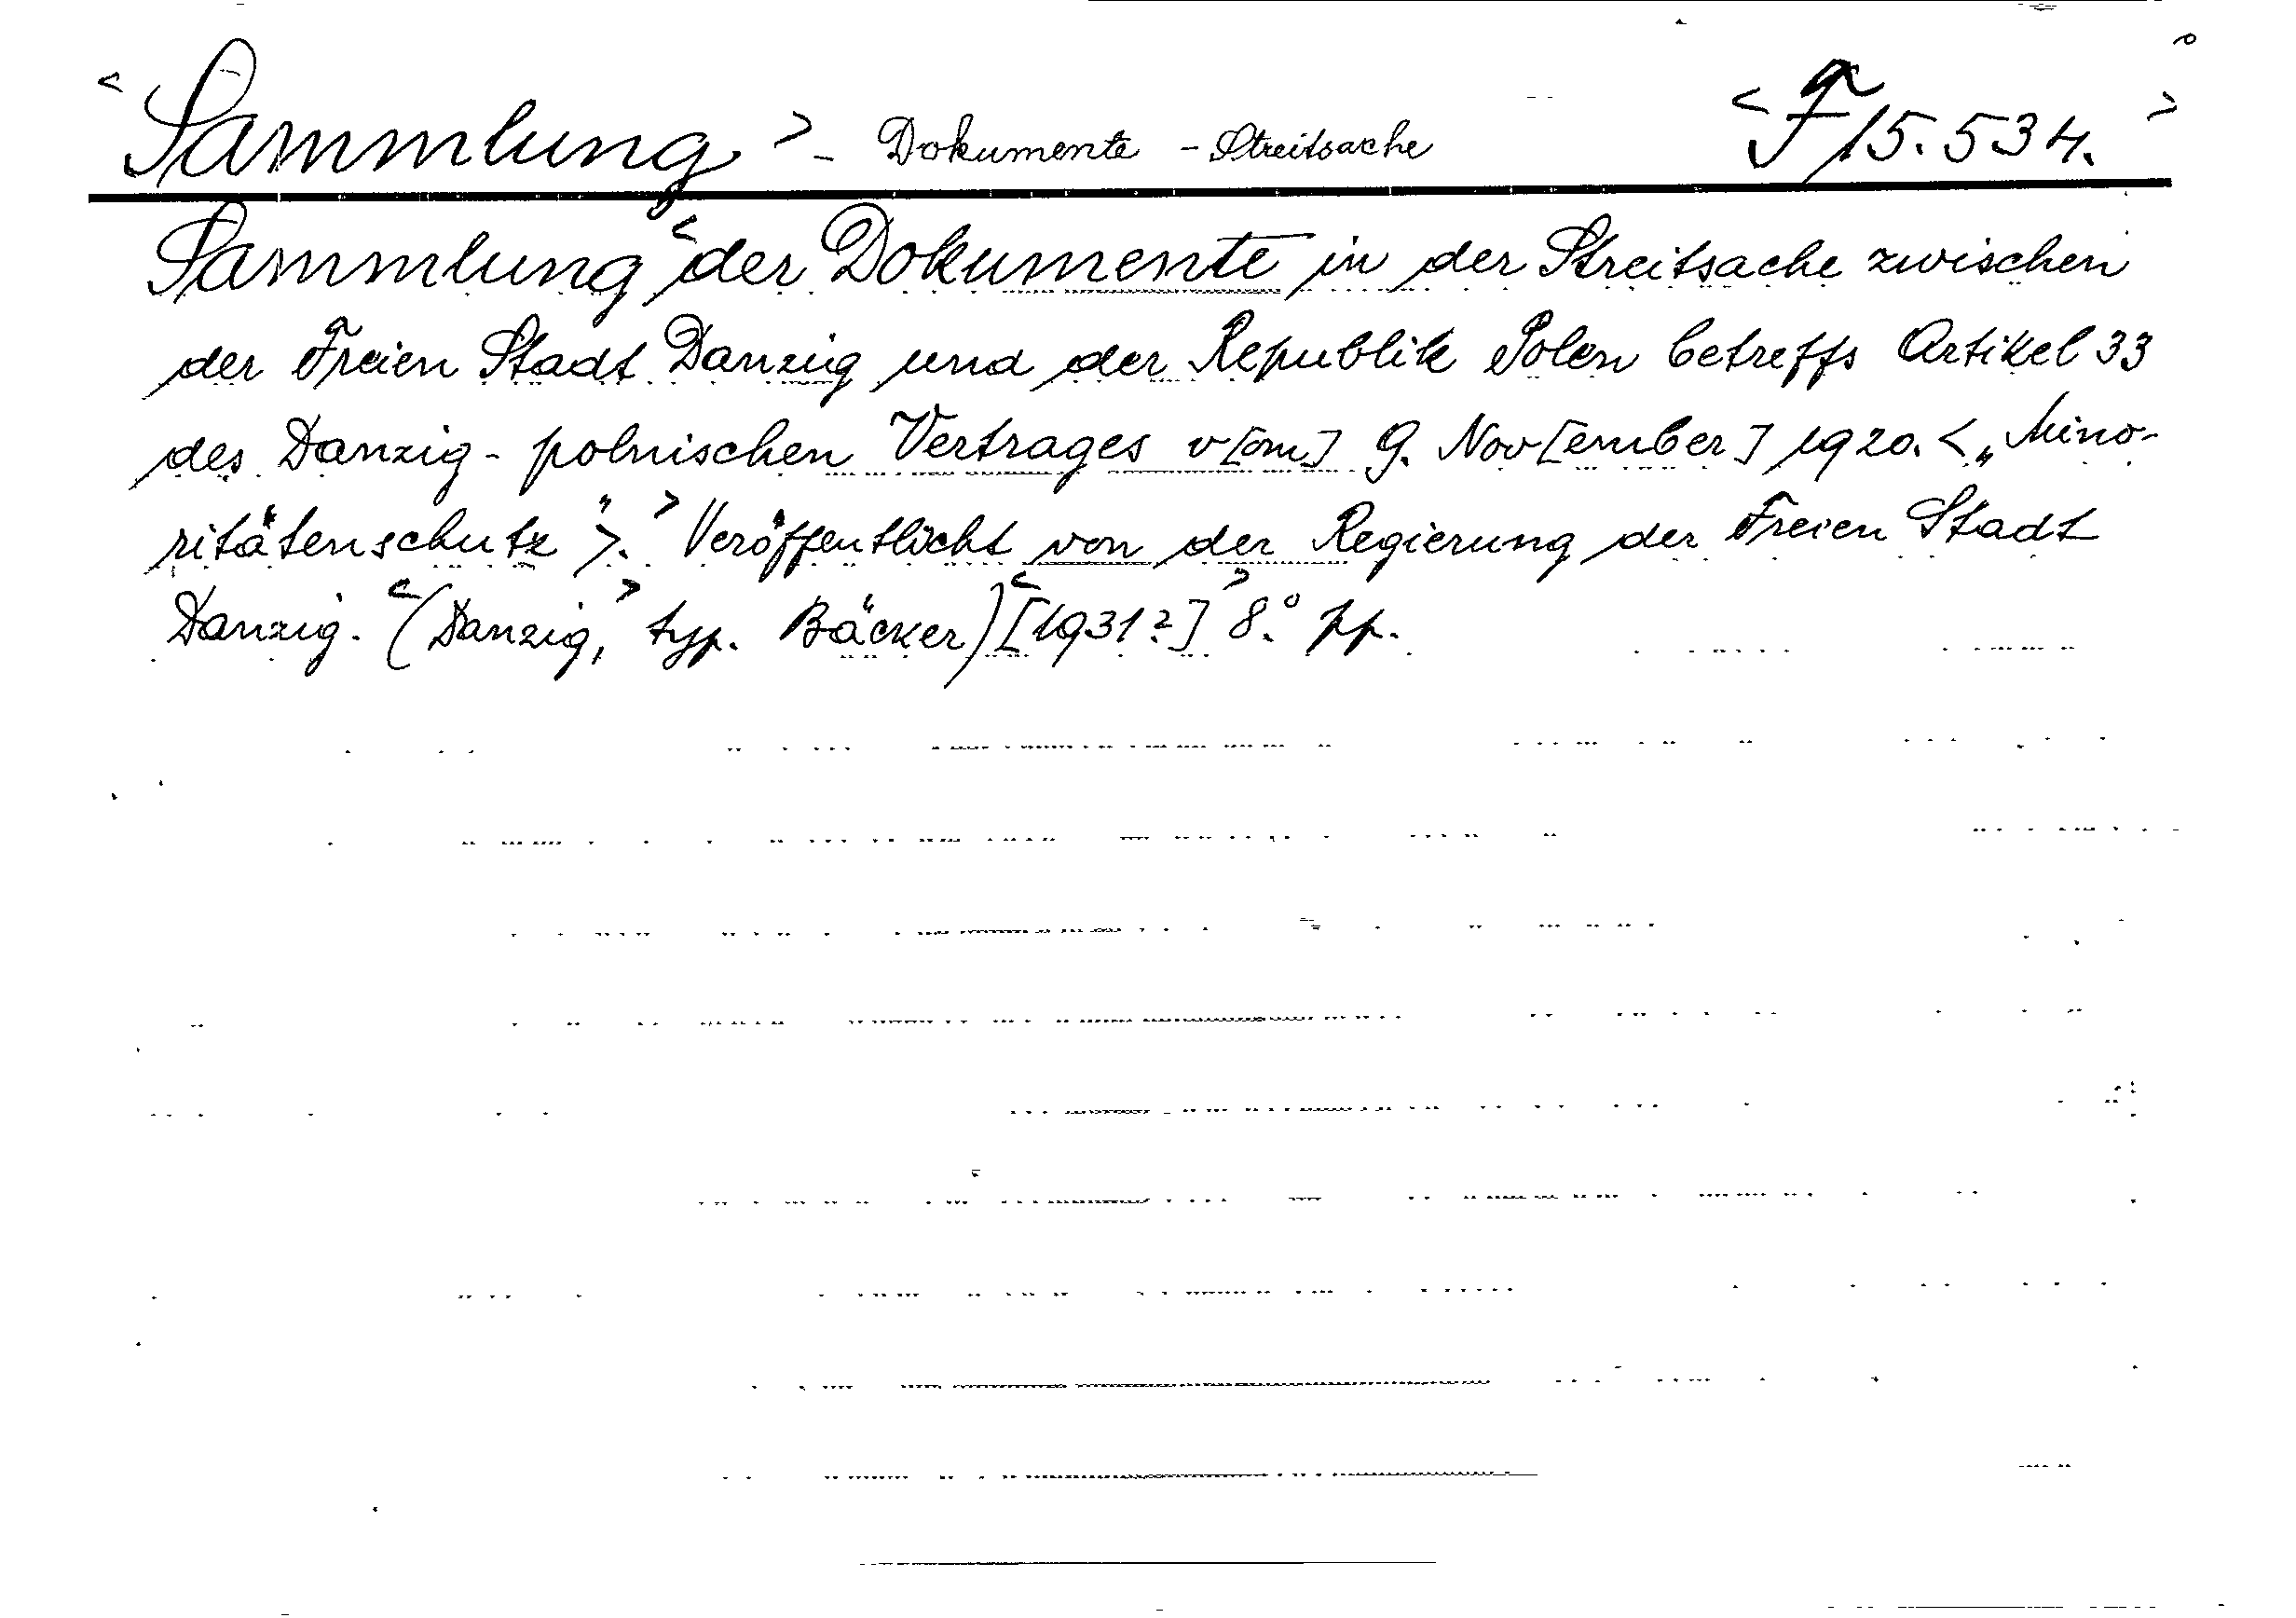 <Sammlung> - Dokumente - Streitsache <F 15.534.>
Sammlung <der Dokumente in der Streitsache zwischen
der Freien Stadt Danzig und der Republik Polen betreffs Artikel 33
des Danzig-polnischen Vertrages v[om] 9. Nov[ember] 1920. < „Mino-
ritätenschutz" >.> Veröffentlicht von der Regierung der Freien Stadt
Danzig. <(Danzig,> typ. Bäcker) <[1931?]> 8.° pp.